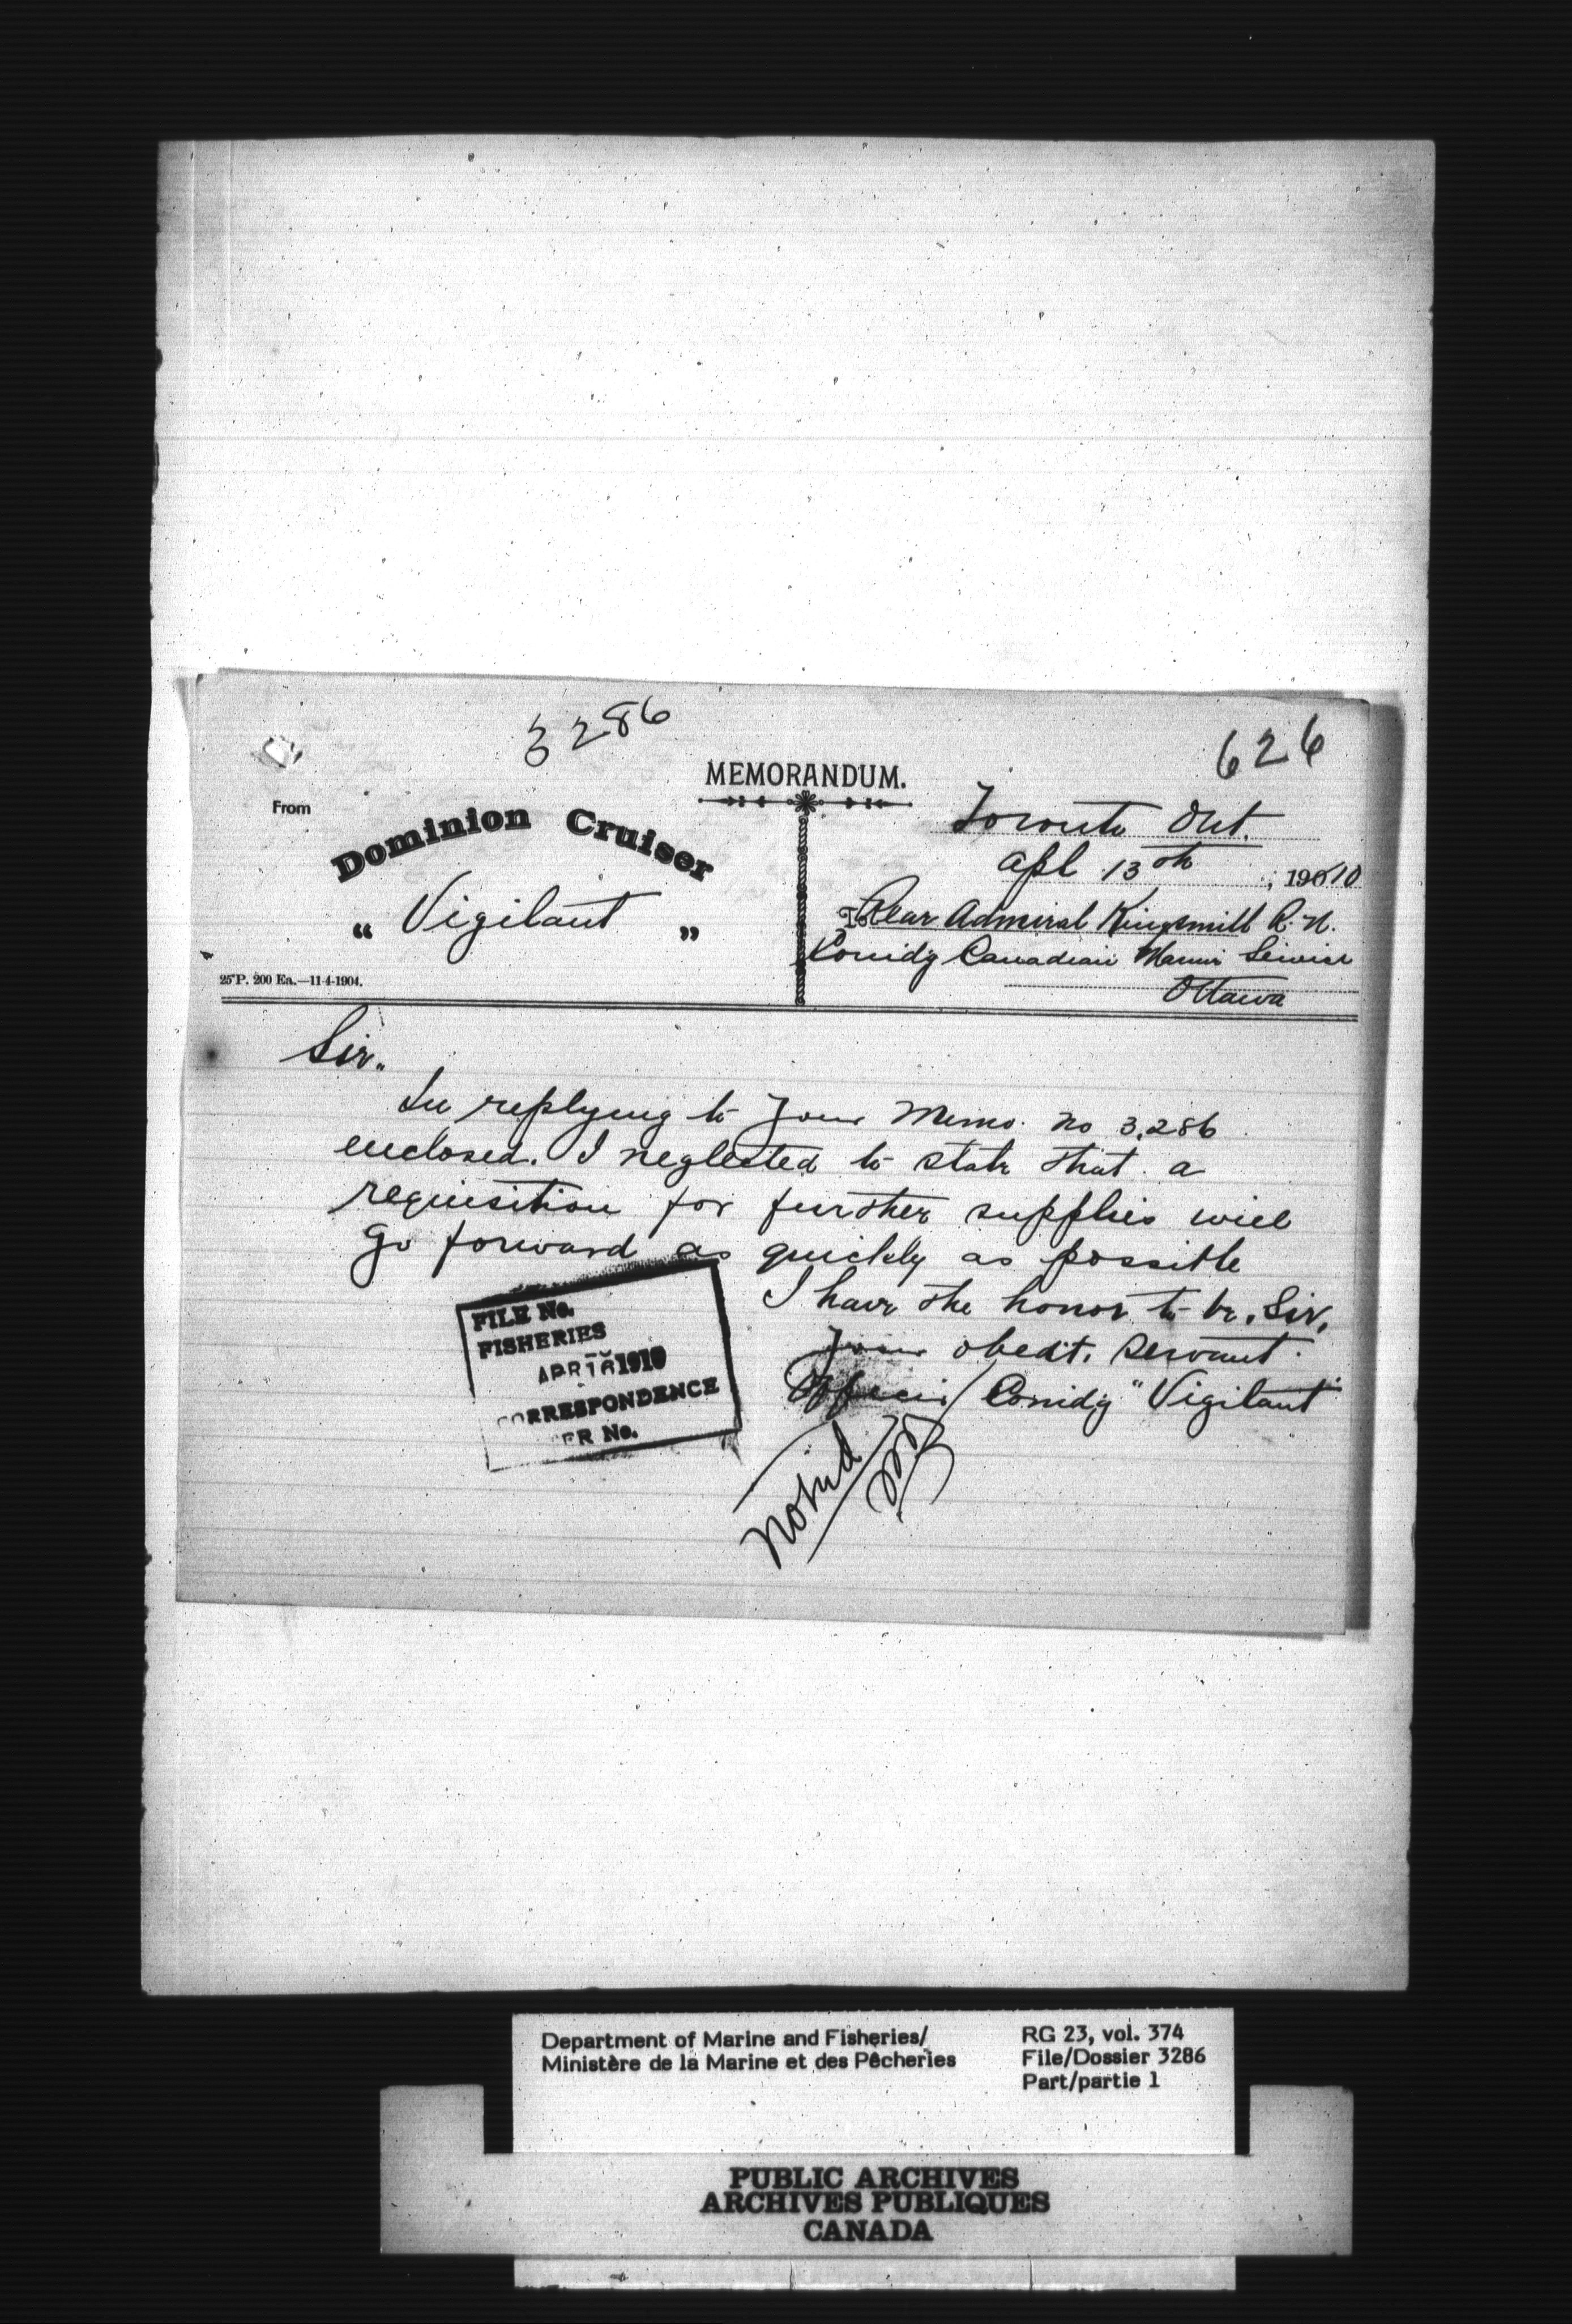 3286
626
MEMORANDUM.
From
Dominion Cruiser
" Vigilant "
25 P. 200 Ea.—11-4-1904.
Toronto Ont.
Apl 13th, 190/10
To Rear Admiral Kingsmill R.N.
Comdg Canadian Marine Service
Ottawa
Sir..
In replying to your Memo. No 3.286
enclosed. I neglected to state that a
requisition for further supplies will
go forward as quickly as possible
I have the honor to be, Sir,
Your obedt. Servant.
Officer Comdg "Vigilant"
FILE No.
FISHERIES
APR 16 1910
CORRESPONDENCE
ER No.
Noted
Department of Marine and Fisheries/
Ministère de la Marine et des Pêcheries
RG 23, vol. 374
File/Dossier 3286
Part/partie 1
PUBLIC ARCHIVES
ARCHIVES PUBLIQUES
CANADA